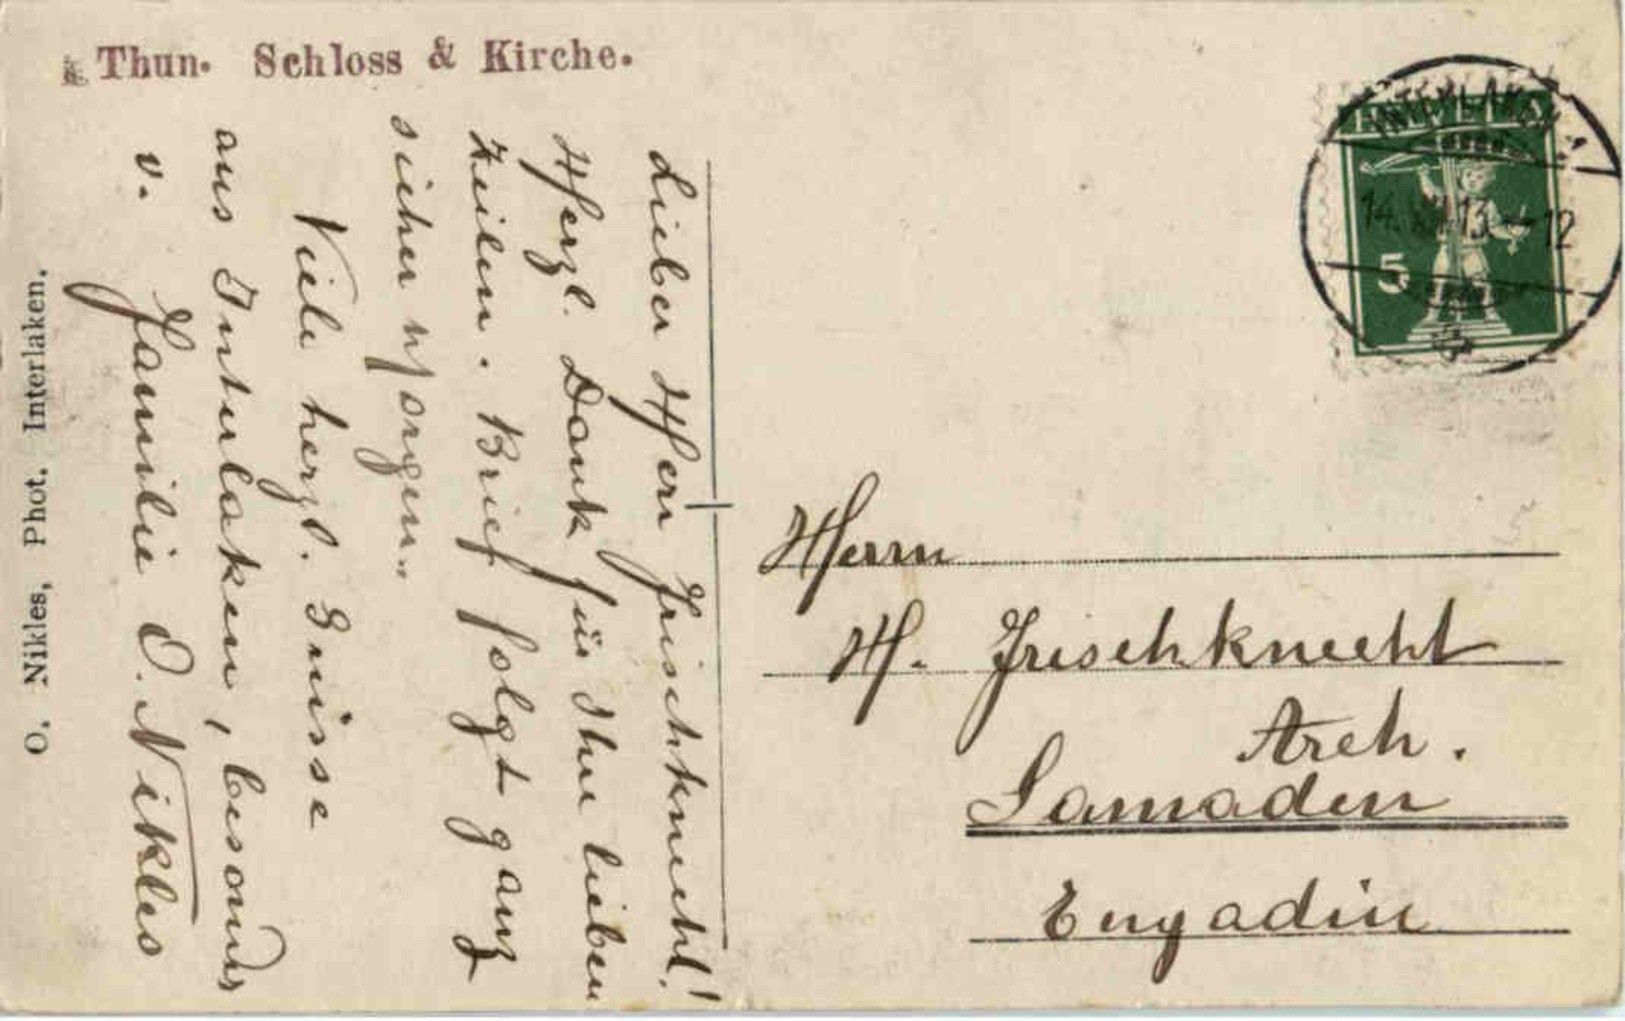 Thun. Schloss & Kirche.
Lieber Herr Frischknecht!
Herzl. Dank für Ihre lieben
Zeilen. Brief folgt ganz
sicher morgen.
Viele herzl. Grüsse
aus Interlaken, besonders
v. Familie O. Nikles
O. Nikles, Phot. Interlaken.
INTERLAKEN 1
14. 13 -12
5
Herrn
H. Frischknecht
Arch.
Samaden
Engadin